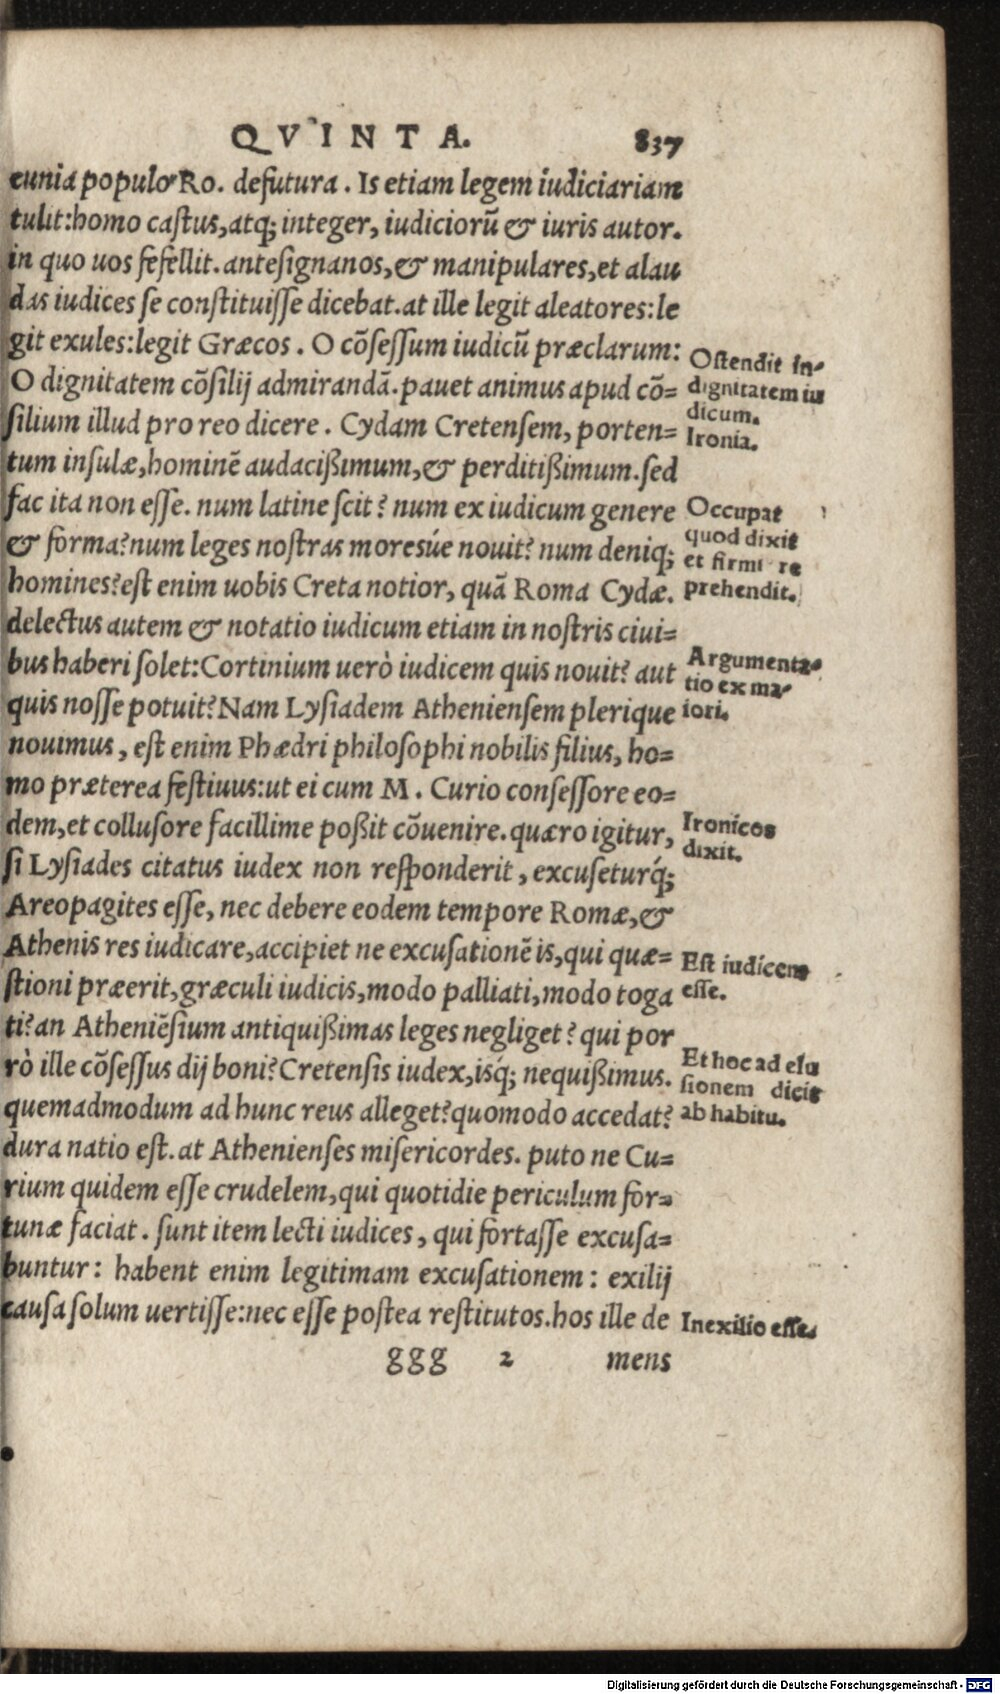 QVINTA. 837
cunia populo Ro. defutura. Is etiam legem iudiciariam
tulit:homo castus,atq; integer, iudiciorũ & iuris autor.
in quo uos fefellit. antesignanos,& manipulares,et alau
das iudices se constituisse dicebat.at ille legit aleatores:le
git exules:legit Græcos. O cõsessum iudicũ præclarum:
O dignitatem cõsilij admirandã.pauet animus apud cõ=
silium illud pro reo dicere. Cydam Cretensem, porten=
tum insulæ,hominẽ audacißimum,& perditißimum.sed
fac ita non esse. num latine scit? num ex iudicum genere
& forma?num leges nostras moresúe nouit? num deniq;
homines?est enim uobis Creta notior, quã Roma Cydæ.
delectus autem & notatio iudicum etiam in nostris ciui=
bus haberi solet:Cortinium uerò iudicem quis nouit? aut
quis nosse potuit?Nam Lysiadem Atheniensem plerique
nouimus, est enim Phædri philosophi nobilis filius, ho=
mo præterea festiuus:ut ei cum M. Curio consessore eo=
dem,et collusore facillime poßit cõuenire.quæro igitur,
si Lysiades citatus iudex non responderit, excuseturq́;
Areopagites esse, nec debere eodem tempore Romæ,&
Athenis res iudicare,accipiet ne excusationẽ is,qui quæ=
stioni præerit,græculi iudicis,modo palliati,modo toga
ti?an Atheniẽsium antiquißimas leges negliget? qui por
rò ille cõsessus dij boni?Cretensis iudex,isq́; nequißimus.
quemadmodum ad hunc reus alleget?quomodo accedat?
dura natio est.at Athenienses misericordes. puto ne Cu=
rium quidem esse crudelem,qui quotidie periculum for=
tunæ faciat. sunt item lecti iudices, qui fortasse excusa=
buntur: habent enim legitimam excusationem: exilij
causa solum uertisse:nec esse postea restitutos.hos ille de
ggg 2 mens
Ostendit in-
dignitatem iu
dicum.
Ironia.
Occupat
quod dixit
et firmi re
prehendit.
Argumenta-
tio ex ma-
iori.
Ironicos
dixit.
Est iudicem
esse.
Et hoc ad elu
sionem dicit
ab habitu.
In exilio esse.
Digitalisierung gefördert durch die Deutsche Forschungsgemeinschaft - DFG